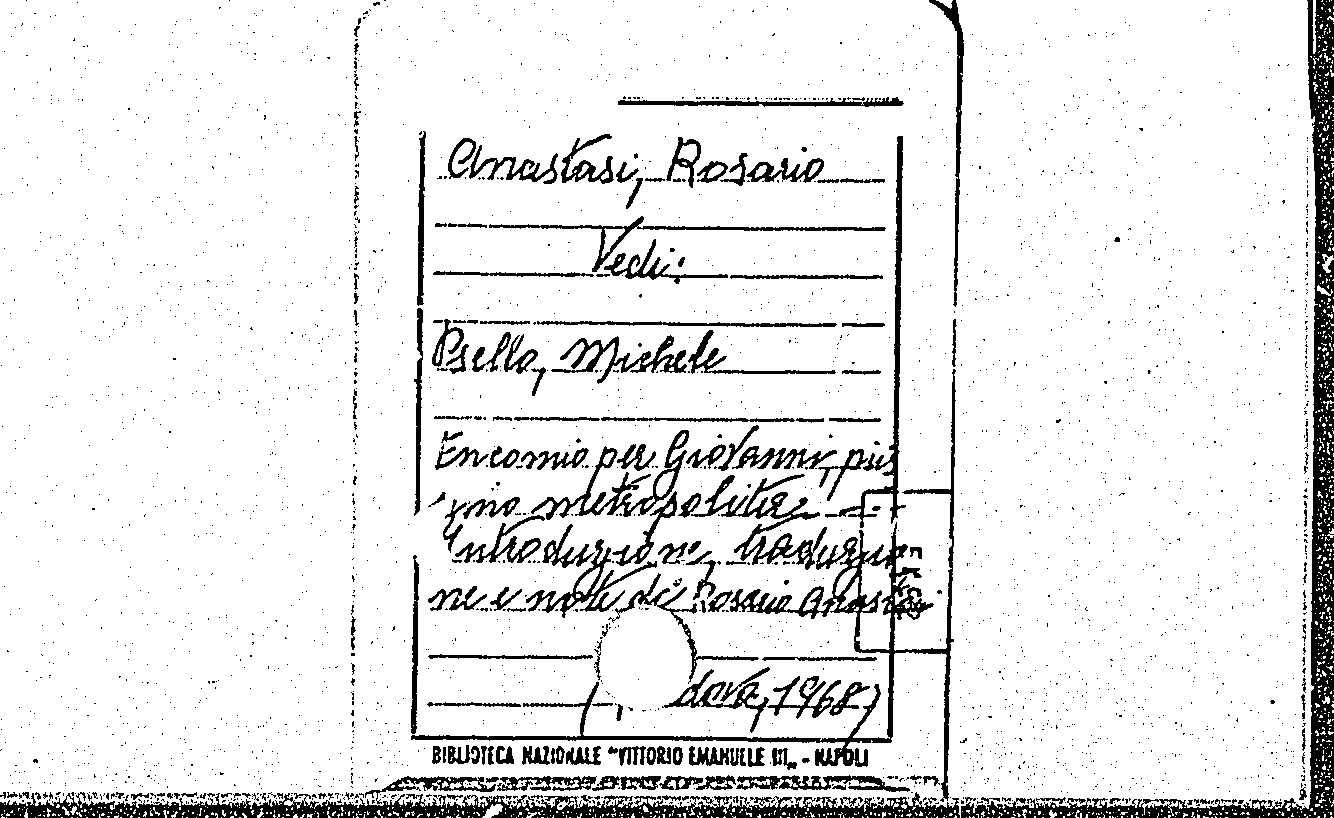 Anastasi, Rosario
Vedi:
Psello, Michele
Encomio per Giovanni, piis
simo metropolita.
Introduzione, traduzio
ne e note di Rosario Anastasi
dova, 1968)
BIBLIOTECA NAZIONALE "VITTORIO EMANUELE III" - NAPOLI